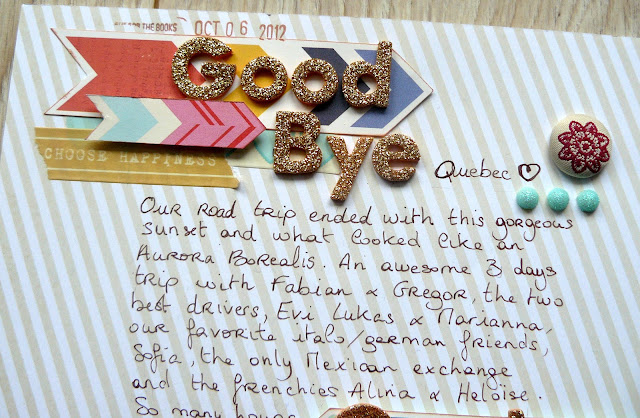 FOR THE BOOKS
OCT 06 2012
Good
Bye
CHOOSE HAPPINESS
Quebec
Our road trip ended with this gorgeous
sunset and what looked like an
Aurora Borealis. An awesome 3 days
trip with Fabian & Gregor, the two
best drivers, Evi Lukas & Marianna,
our favorite italo/german friends,
Sofia, the only Mexican exchange
and the frenchies Alina & Heloïse.
So many hours